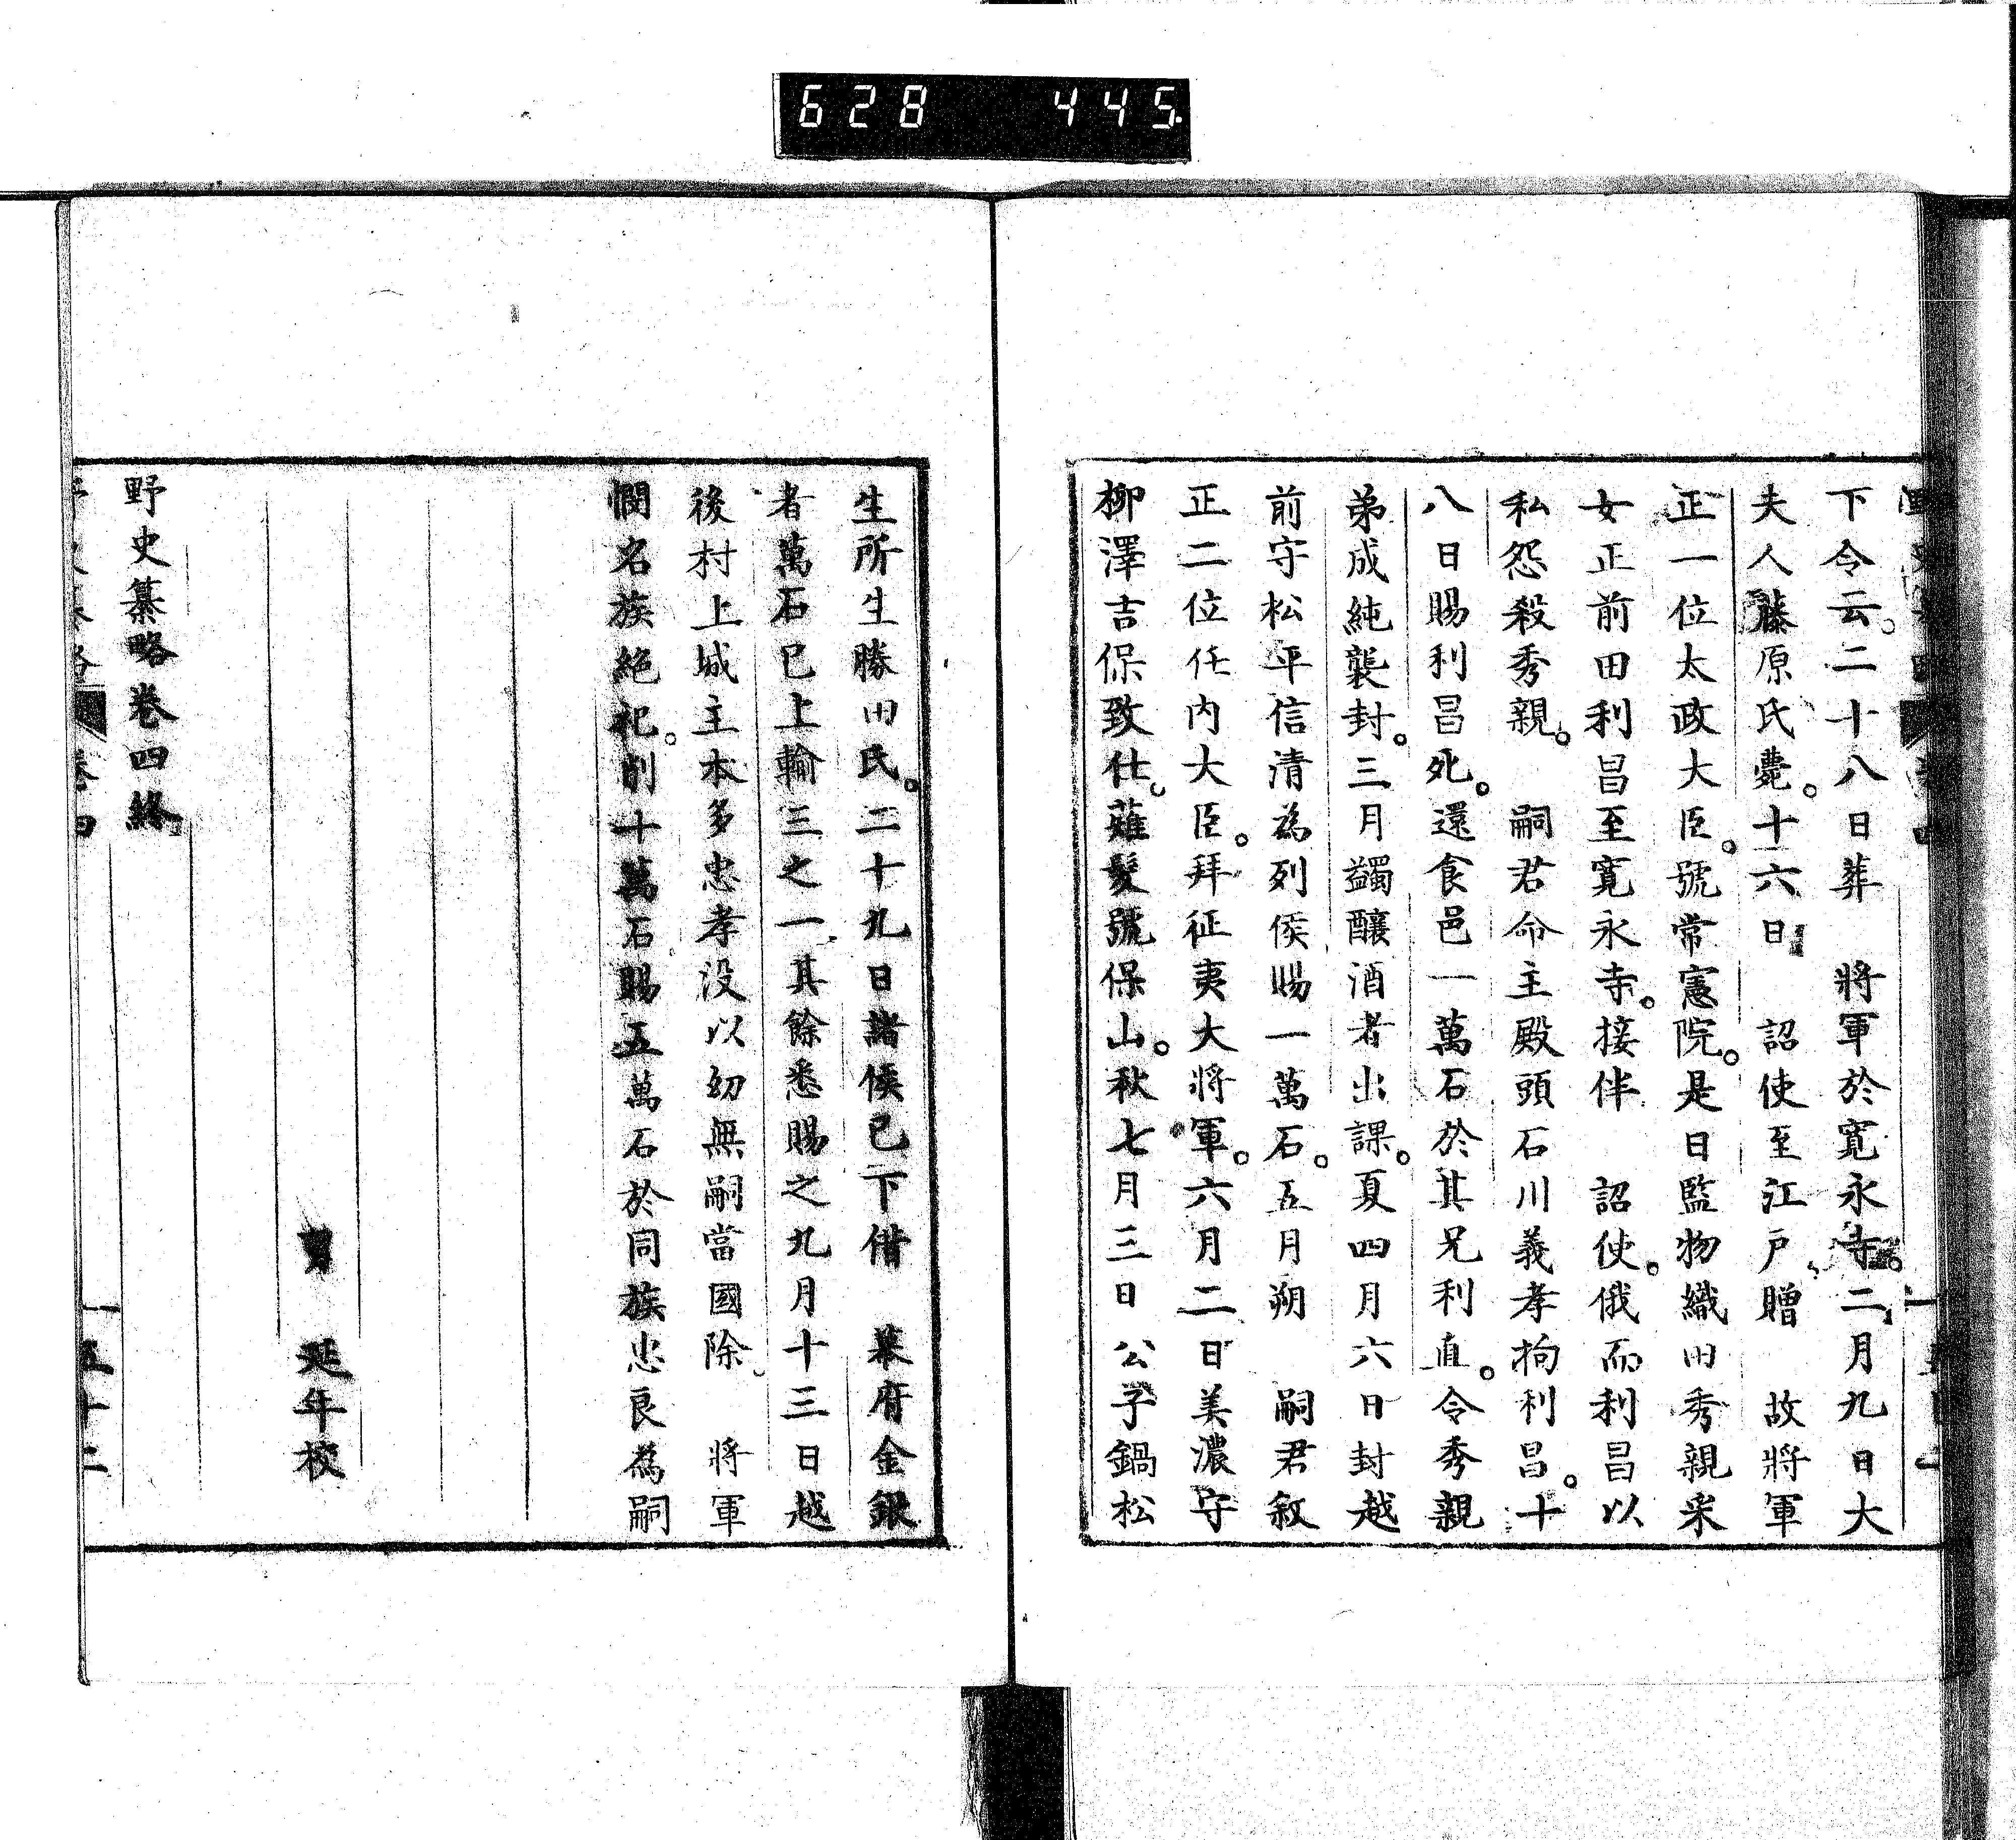 628 445.
下令云。二十八日葬　將軍於寛永寺。二月九日大
夫人藤原氏薨。十六日　詔使至江戸贈　故將軍
正一位太政大臣。號常憲院。是日監物織田秀親采
女正前田利昌至寛永寺。接伴　詔使。俄而利昌以
私怨殺秀親。　嗣君命主殿頭石川義孝拘利昌。十
八日賜利昌死。還食邑一萬石於其兄利直。令秀親
弟成純襲封。三月蠲釀酒者出課。夏四月六日封越
前守松平信清為列侯賜一萬石。五月朔　嗣君敘
正二位任内大臣。拜征夷大將軍。六月二日美濃守
柳澤吉保致仕。薙髮號保山。秋七月三日公子鍋松
生所生勝田氏。二十九日諸侯已下借　幕府金銀
者萬石已上輸三之一其餘悉賜之九月十三日越
後村上城主本多忠孝没以幼無嗣當國除　將軍
憫名族絶祀。削十萬石賜五萬石於同族忠良為嗣
延年校
野史纂略巻四終
巻四
一五十二